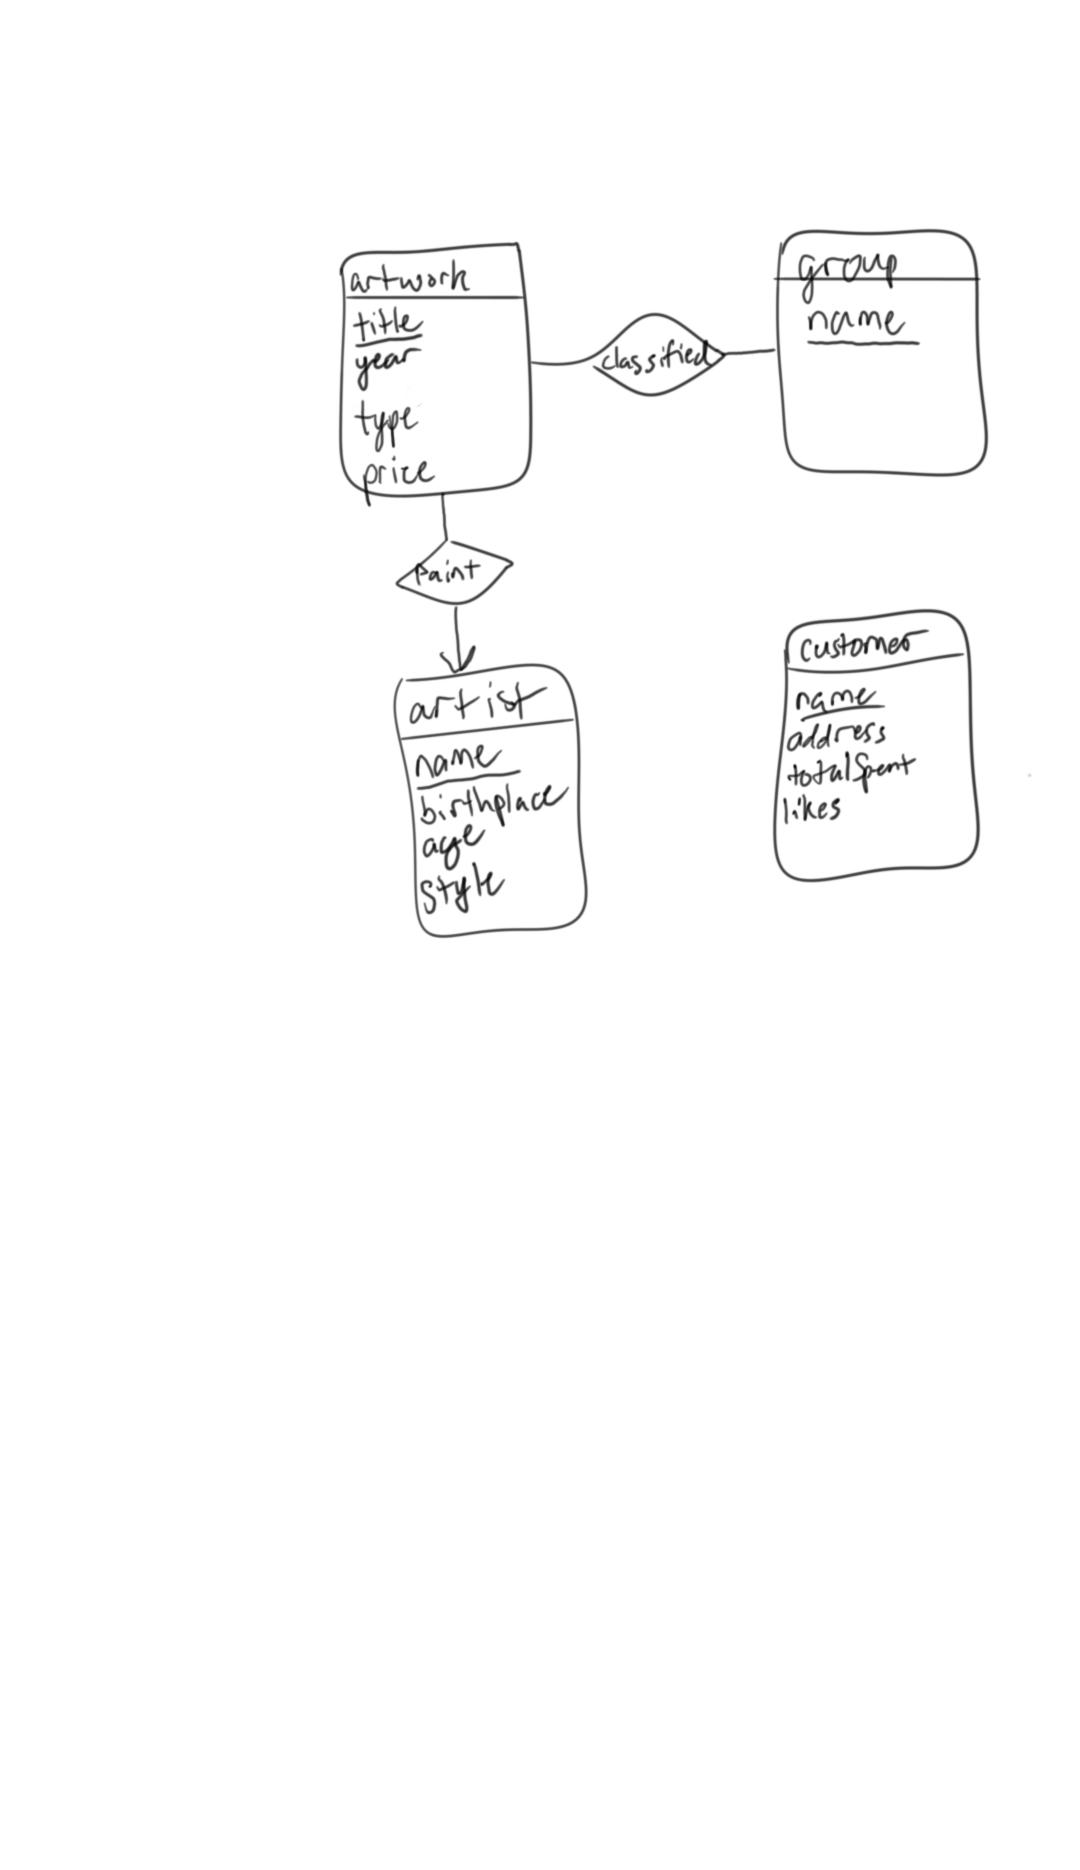 artwork
title
year
type
price
classified
group
name
paint
artist
name
birthplace
age
style
customer
name
address
totalSpent
likes